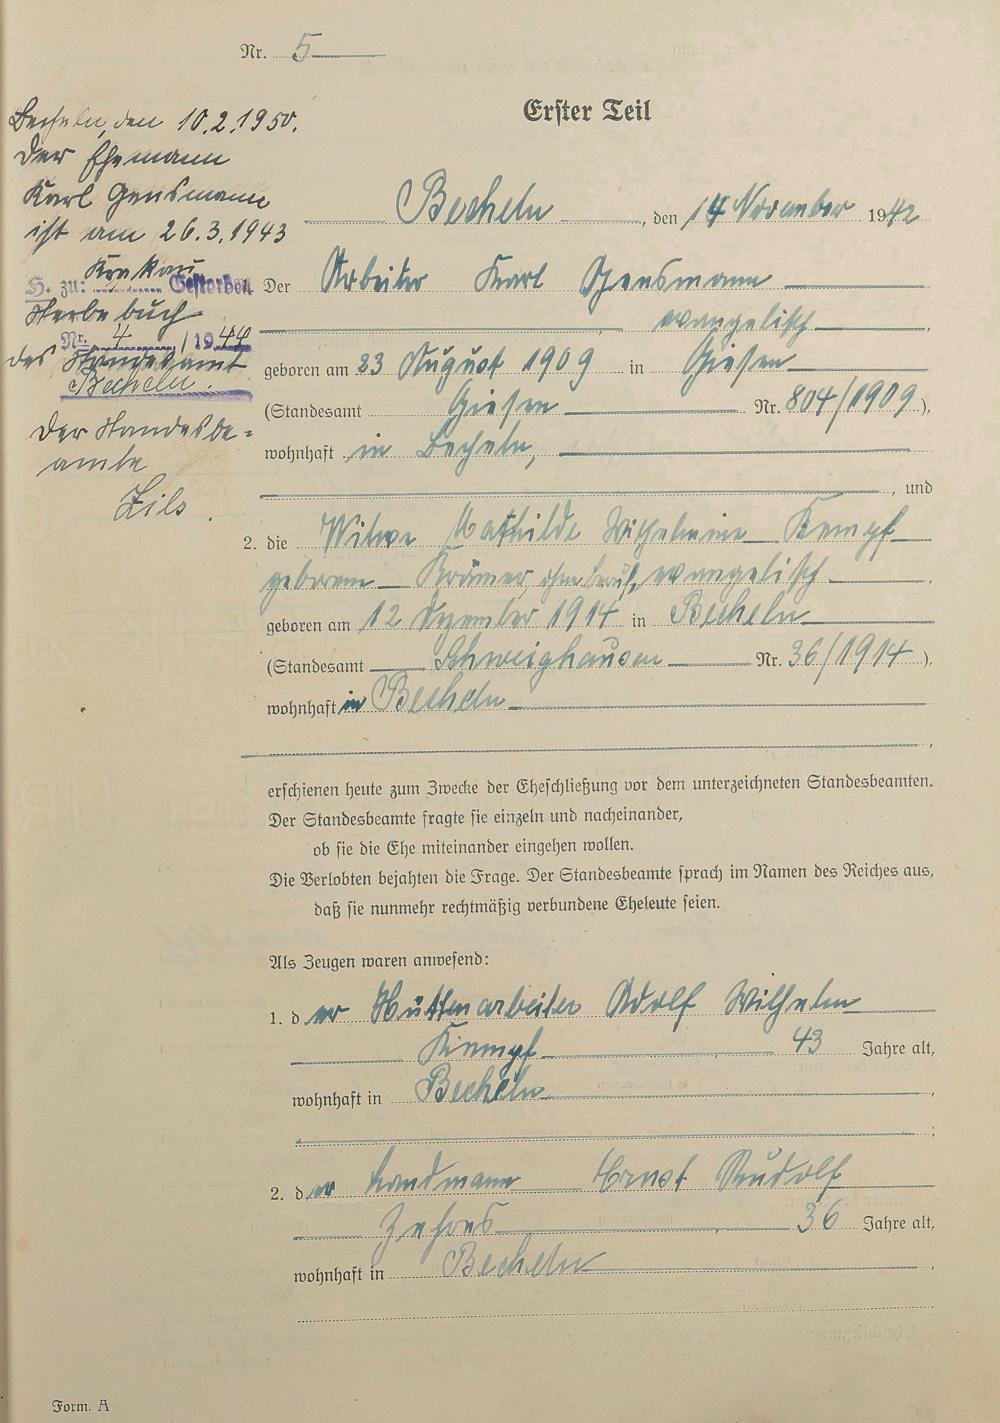 Nr. 5
Becheln, den 10.2.1950.
Der Ehemann
Karl Gensmann
ist am 26.3.1943
Krakau
H. zu: Gestorben
Sterbebuch
Nr. 4 / 1944
des Standesamt
Becheln.
Der Standesbe=
amte
Zils.
Erster Teil
Becheln, den 14 November 1942
Der Arbeiter Karl Gensmann
, evangelisch,
geboren am 23 August 1909 in Giesen
(Standesamt Giesen Nr. 804/1909),
wohnhaft in Becheln,
, und
2. die Witwe Mathilde Wilhelmine Kempf
geborene Krämer, ohne Beruf, evangelisch,
geboren am 12 Dezember 1914 in Becheln
(Standesamt Schweighausen Nr. 36/1914),
wohnhaft in Becheln
,
erschienen heute zum Zwecke der Eheschließung vor dem unterzeichneten Standesbeamten.
Der Standesbeamte fragte sie einzeln und nacheinander,
ob sie die Ehe miteinander eingehen wollen.
Die Verlobten bejahten die Frage. Der Standesbeamte sprach im Namen des Reiches aus,
daß sie nunmehr rechtmäßig verbundene Eheleute seien.
Als Zeugen waren anwesend:
1. der Hüttenarbeiter Adolf Wilhelm
Kempf, 43 Jahre alt,
wohnhaft in Becheln,
;
2. der Landmann Ernst Rudolf
, 36 Jahre alt,
wohnhaft in Becheln,
Form. A